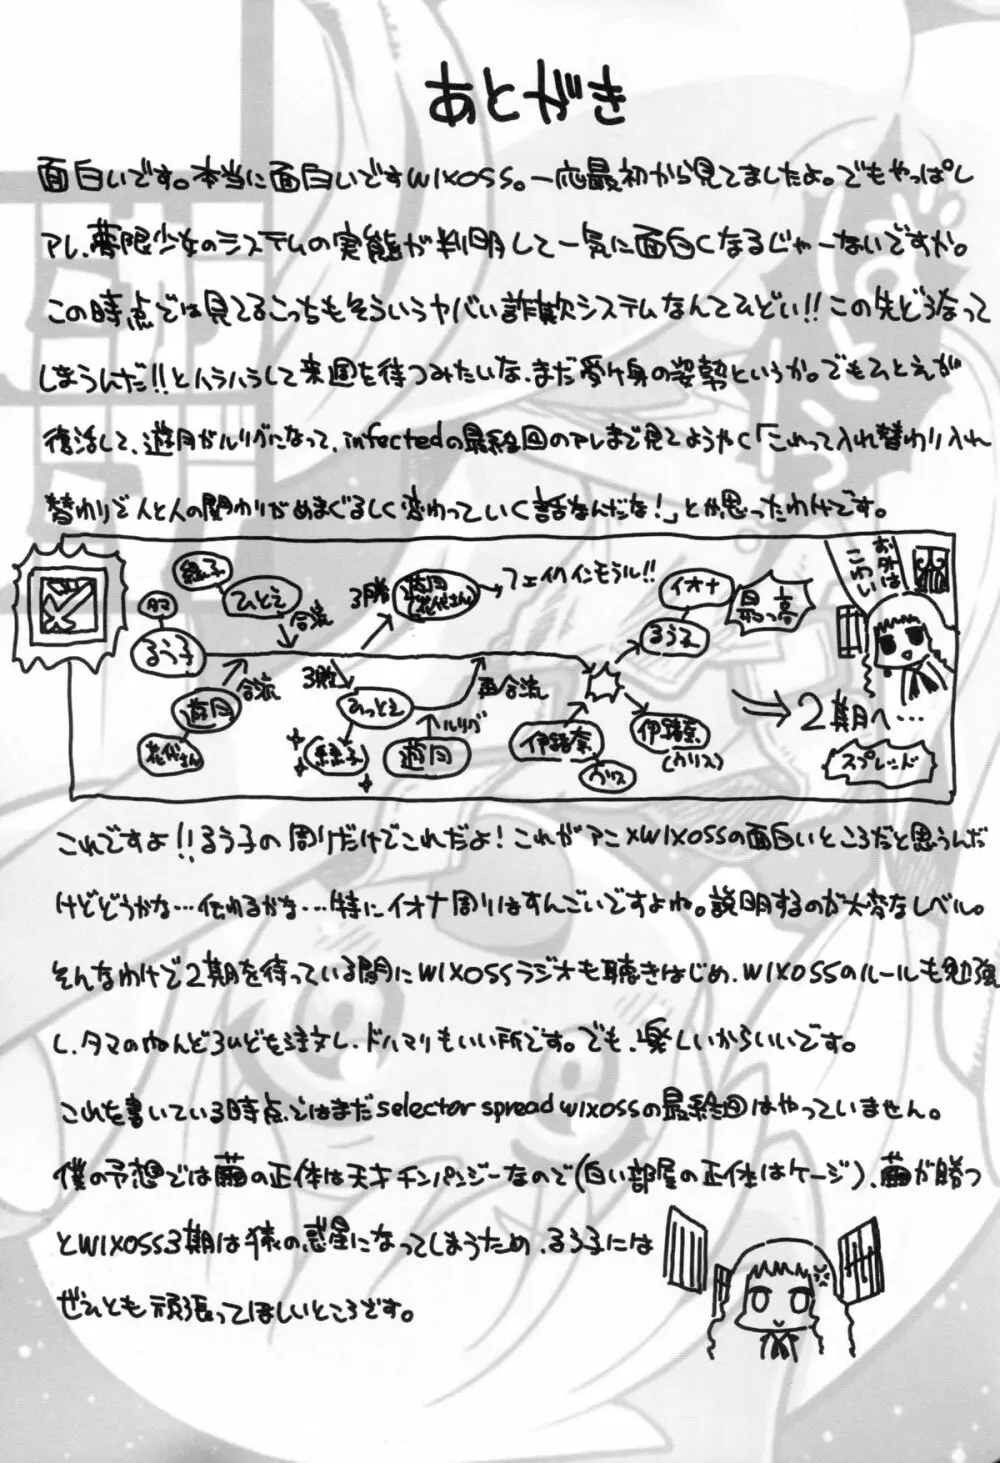 あとがき
面白いです。本当に面白いですWIXOSS。一応最初から見てましたよ。でもやっぱし
アレ、夢限少女のシステムの実態が判明して一気に面白くなるじゃーないですか。
この時点では見てるこっちもそういうヤバい詐欺システムなんてひどい!!この先どうなって
しまうんだ!!とハラハラして来週を待つみたいな、まだ受け身の姿勢というか。でもひとえが
復活して、遊月がルリグになって、infectedの最終回のアレまで見てようやく「これって入れ替わり入れ
替わりで人と人の関わりがめまぐるしく変わっていく話なんだな!」とか思ったわけです。
タマ
るう子
緑子
ひとえ
合流
遊月
花代さん
合流
3勝
遊月
(花代さん)
フェイクインモラル!!
3敗
ひとえ
緑子
ルリグ
遊月
再合流
イオナ
るう子
最っ高
伊緒奈
ウリス
伊緒奈
(ウリス)
お外は
こわい
2期へ…
スプレッド
これですよ!!るう子の周りだけでこれだよ!これがアニメWIXOSSの面白いところだと思うんだ
けどどうかな…伝わるかな…特にイオナ周りはすんごいですよね。説明するのが大変なレベル。
そんなわけで2期を待っている間にWIXOSSラジオも聴きはじめ、WIXOSSのルールも勉強
し、タマのねんどろいどを注文し、ドハマリもいい所です。でも、楽しいからいいです。
これを書いている時点ではまだselector spread wixossの最終回はやっていません。
僕の予想では繭の正体は天才チンパンジーなので(白い部屋の正体はケージ)、繭が勝つ
とWIXOSS3期は猿の惑星になってしまうため、るう子には
ぜひとも頑張ってほしいところです。